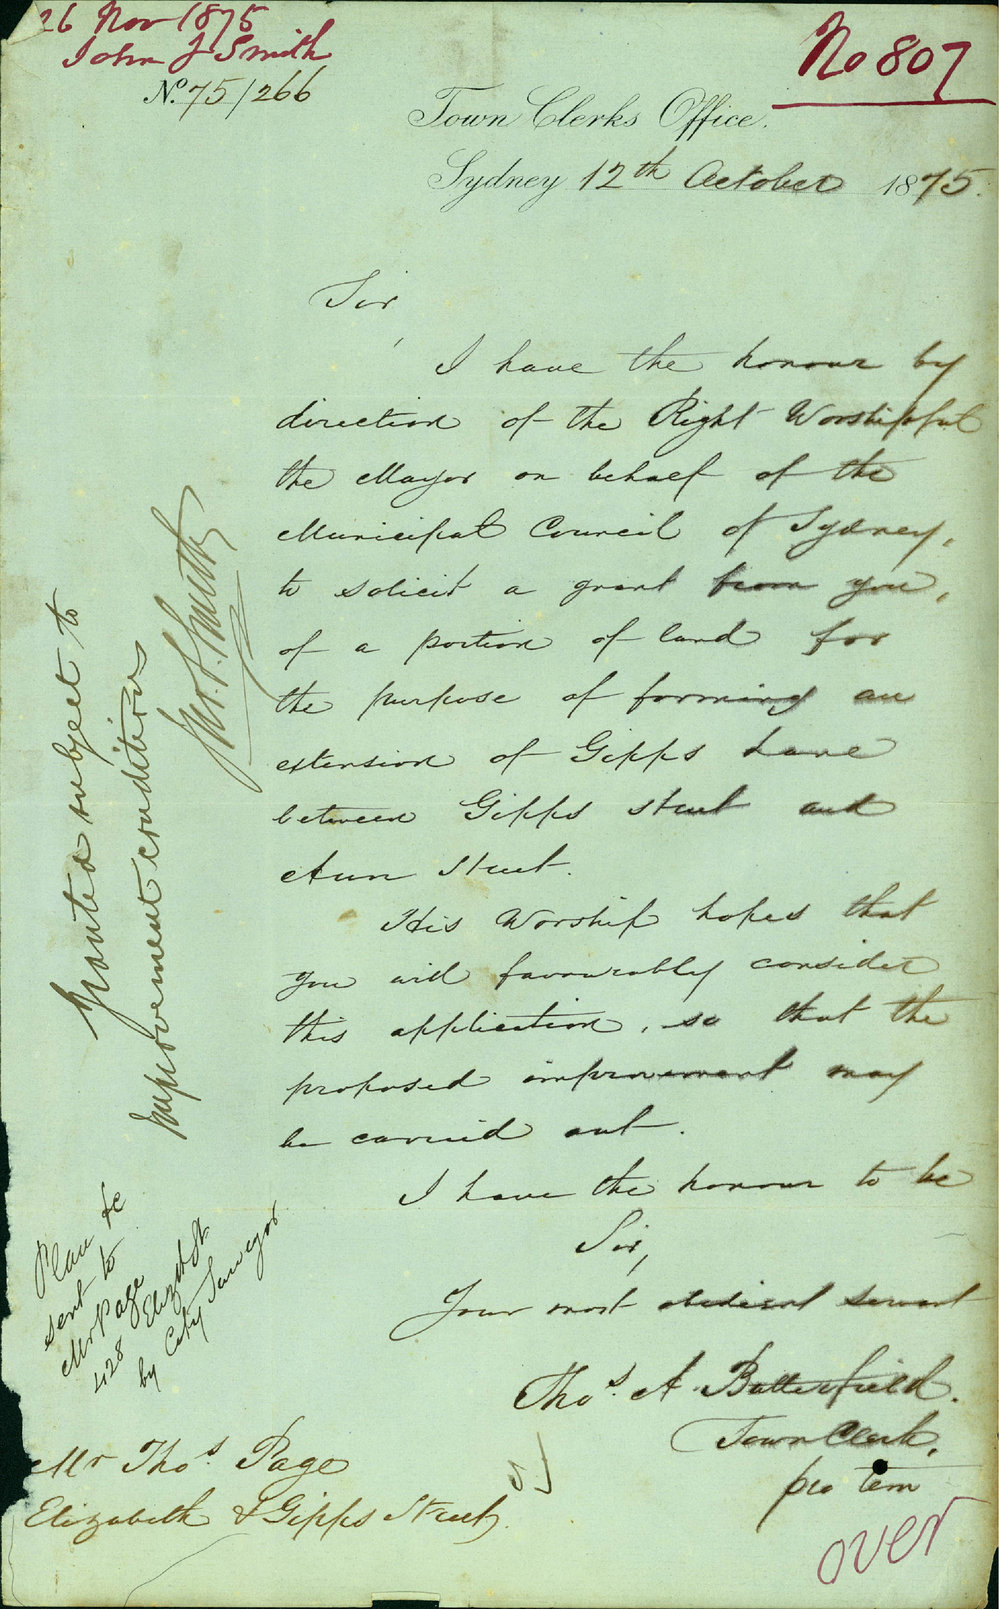 26 Nov 1875
John J Smith
No. 75/266
No 807
Town Clerks Office.
Sydney 12th October 1875.
Sir,
I have the honour by
direction of the Right Worshipful
the Mayor on behalf of the
Municipal Council of Sydney,
to solicit a grant from you,
of a portion of land for
the purpose of forming an
extension of Gipps Lane
between Gipps Street and
Ann Street.
His Worship hopes that
you will favourably consider
this application, so that the
proposed improvement may
be carried out.
I have the honour to be
Sir,
Your most obedient servant
Thos. A. Butterfield.
Town Clerk,
pro tem
Mr Thos Page
Elizabeth & Gipps Street,
over
Granted subject to
improvement conditions
Jno. J. Smith
Plan &c
sent to
Mr Page
428 Elizth St
by City Surveyor